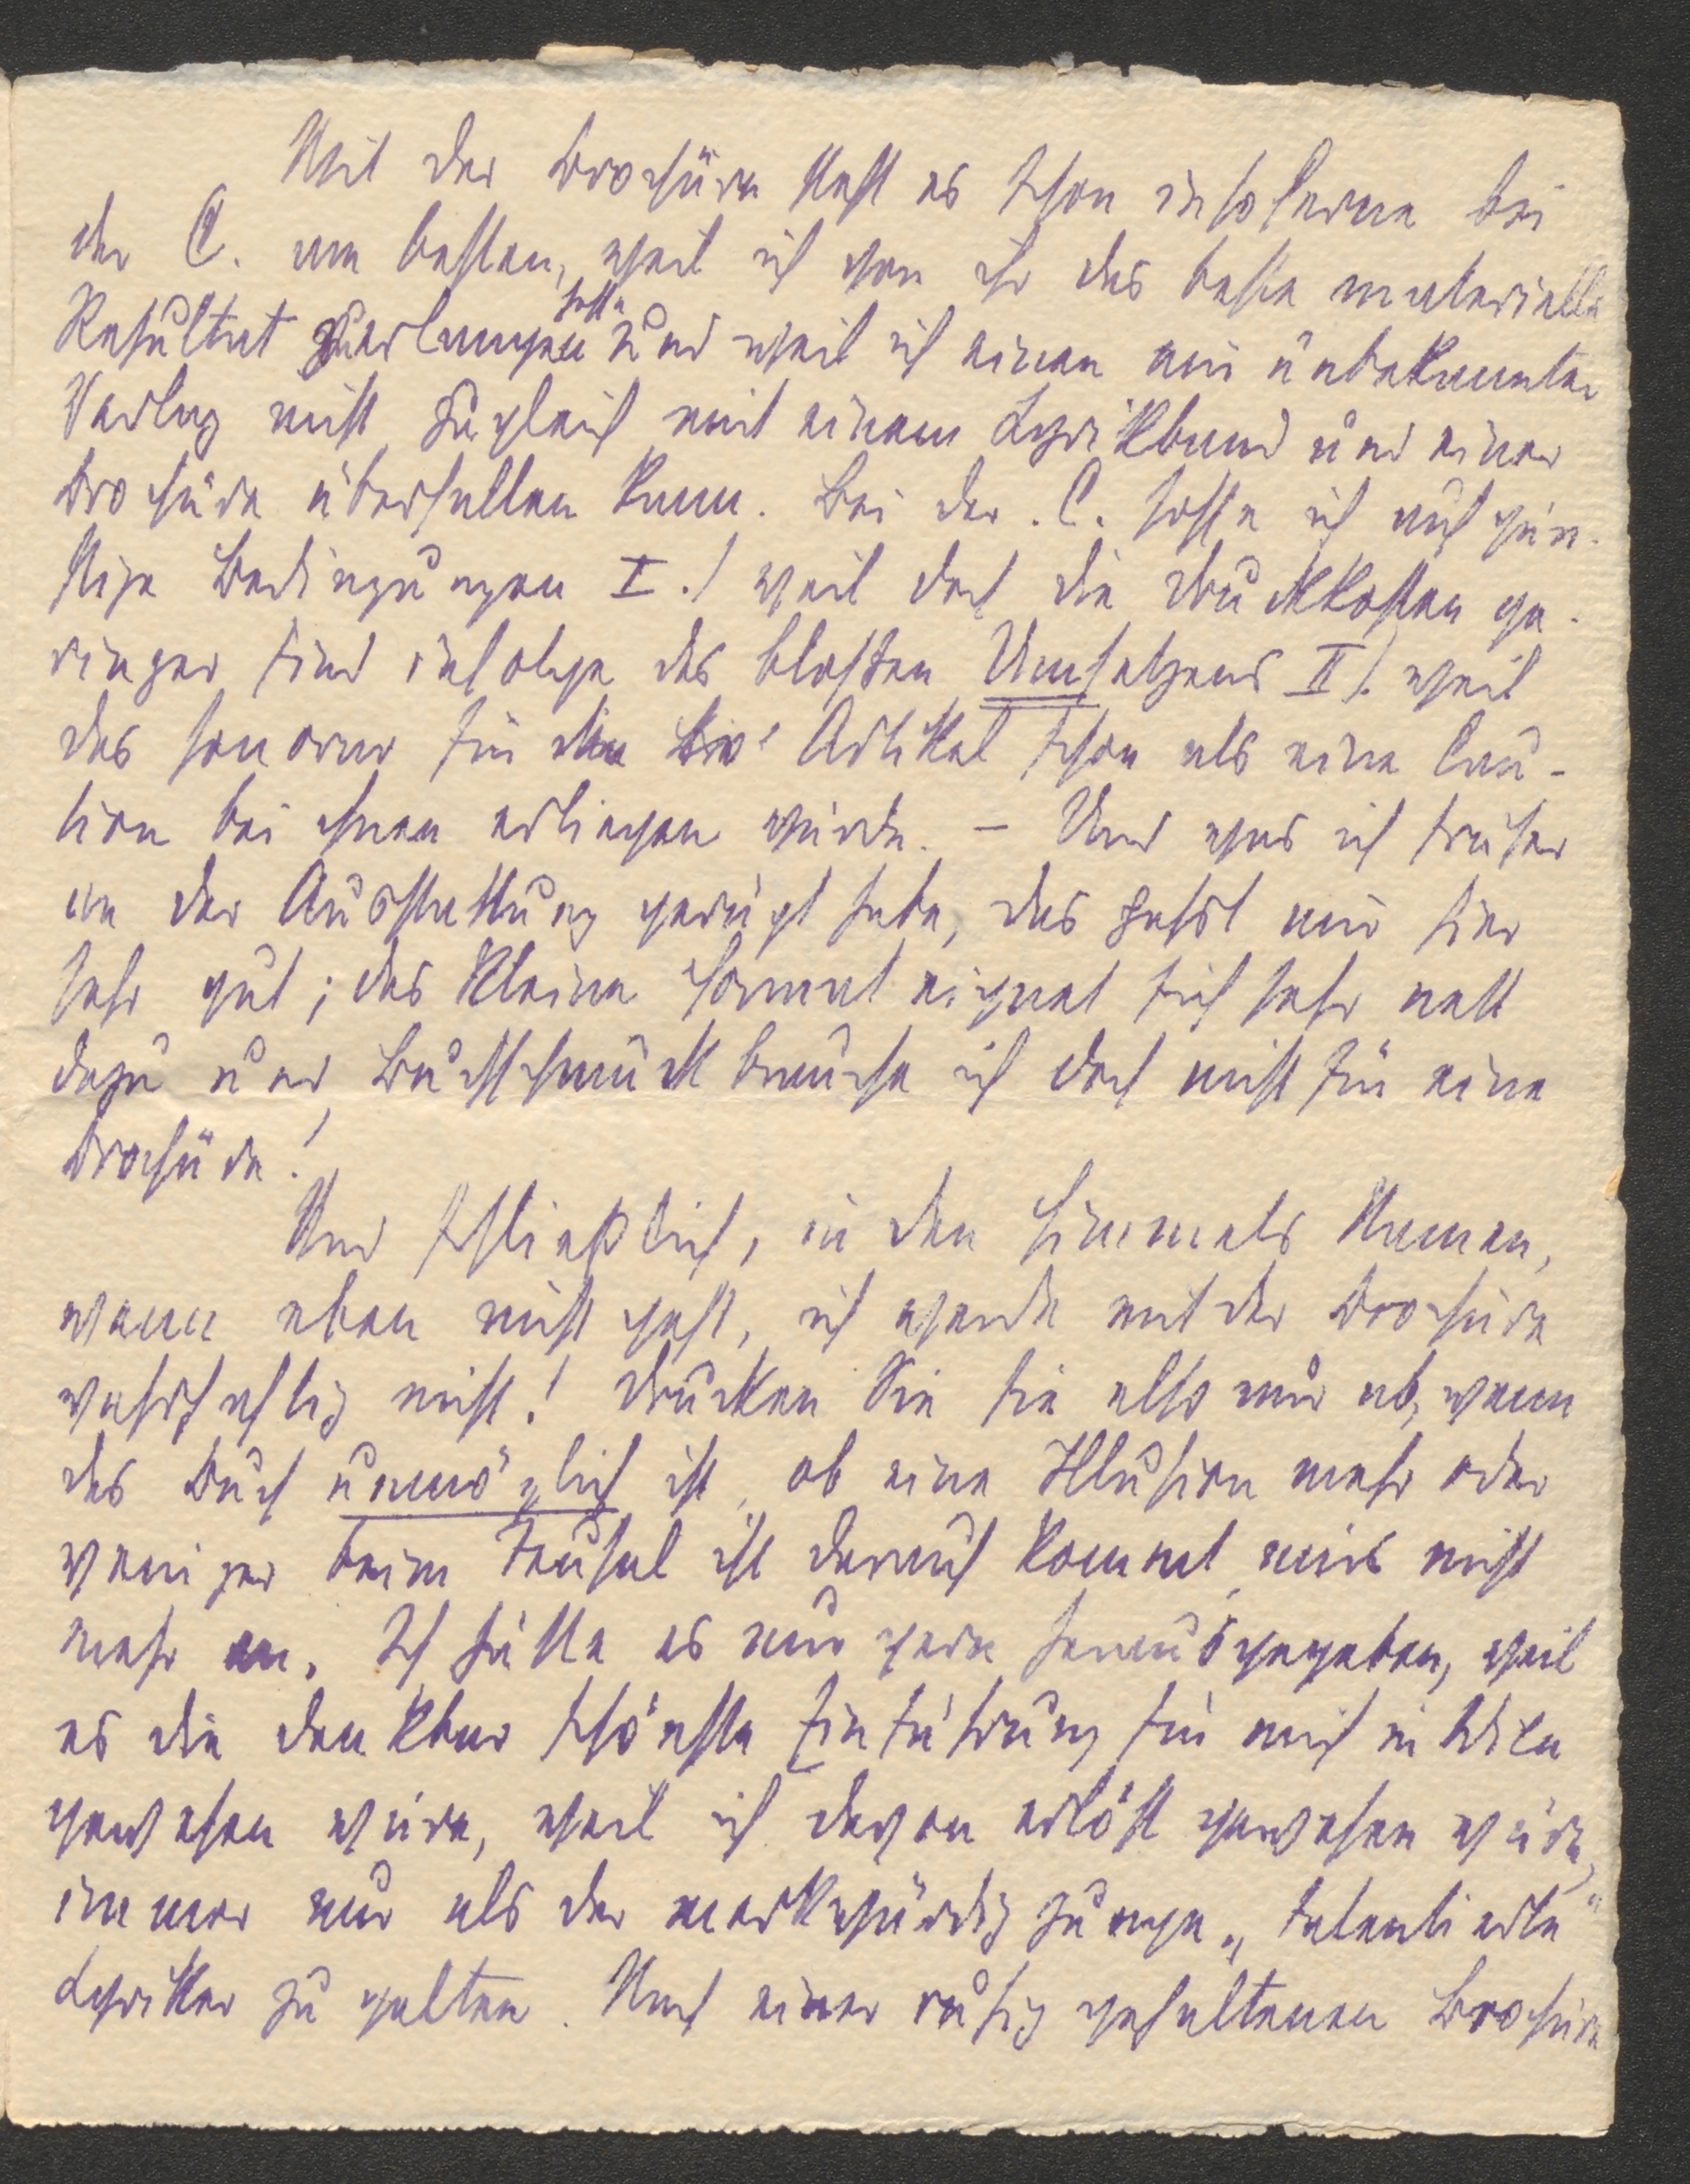 Mit der Brochüre steht es schon insoferne bei
der C. am besten, weil ich von ihr das beste materielle
Resultat zu erlangen hoffe und weil ich einen mir unbekannten
Verlag nicht zugleich mit einem Lyrikband und einer
Brochüre überfallen kann. Bei der C. hoffe ich auf gün-
stige Bedingungen I.) weil doch die Druckkosten ge-
ringer sind infolge des bloßen Umsetzens II.) weil
das Honorar für den Artikel schon als eine Cau-
tion bei ihnen erliegen würde. – Und was ich früher
an der Ausstattung gerügt habe, das passt mir hier
sehr gut; das kleine Format eignet sich sehr nett
dazu und Buchschmuck brauche ich doch nicht für eine
Brochüre!
Und schließlich, in den Himmels Namen,
wenn eben nicht geht, ich werde mit der Brochüre
wahrhaftig nicht! Drucken Sie sie also nur ab, wenn
das Buch unmöglich ist, ob eine Illusion mehr oder
weniger beim Teufel ist darauf kommt mirs nicht
mehr an. Ich hätte es nur gern herausgegeben, weil
es die denkbar schönste Einführung für mich in Wien
gewesen wäre, weil ich davon erlöst gewesen wäre,
immer nur als der merkwürdig junge „talentierte“
Lyriker zu gelten. Nach einer ruhig gehaltenen Brochüre